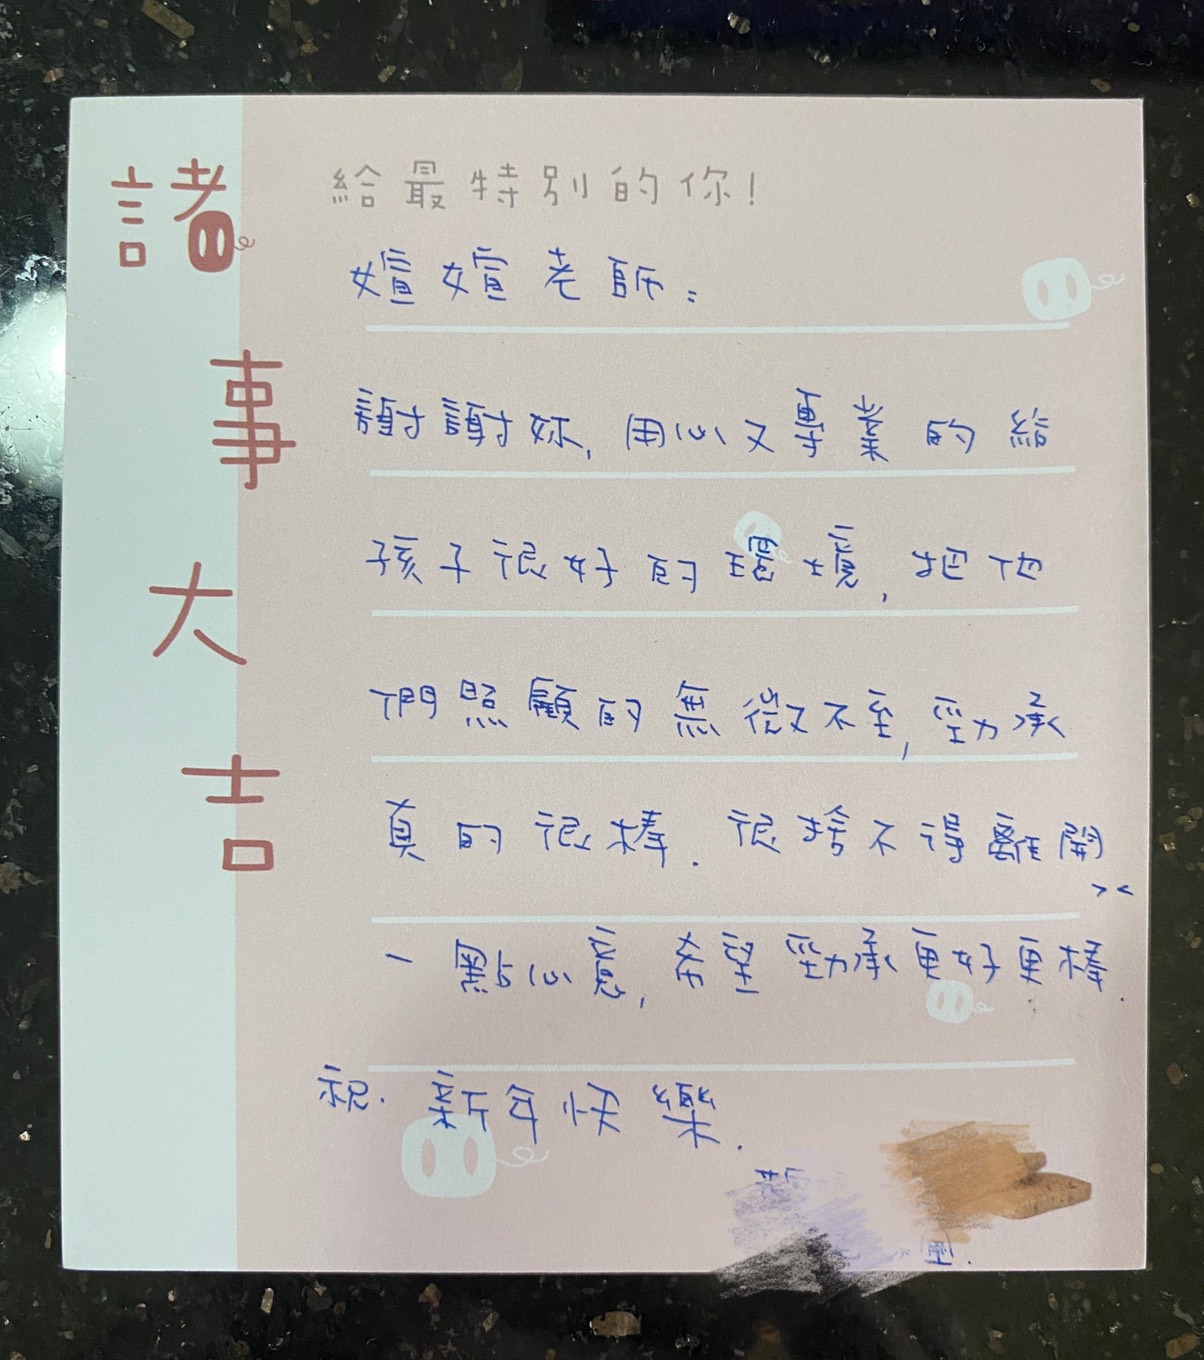 諸事大吉
給最特別的你!
媗媗老師：
謝謝妳,用心又專業的給
孩子很好的環境,把他
們照顧的無微不至,勁承
真的很棒.很捨不得離開
><
一點心意,希望勁承更好更棒.
祝.新年快樂.